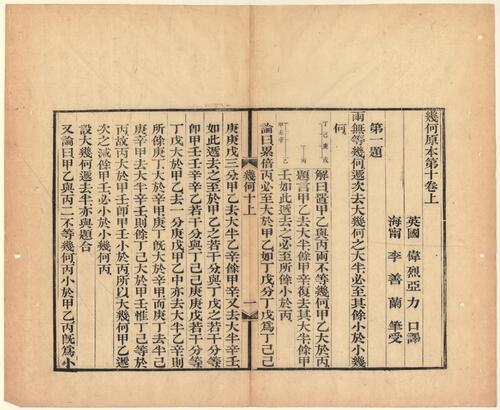 幾何原本第十卷上
英國 偉烈亞力 口譯
海甯 李善蘭 筆受
第一題
兩無等幾何遞次去大幾何之大半必至其餘小於小幾
何
丁己庚戊
丙
解曰置甲乙與丙兩不等幾何甲乙大於丙
題言甲乙去大半餘甲辛復去其大半餘甲
壬如此遞去之必至所餘小於丙
論曰累倍丙必至大於甲乙如丁戊分丁戊為丁己己
幾何十上
一
庚庚戊三分甲乙去大半乙辛餘甲辛又去大半辛壬
如此遞去之至於甲乙之若干分與丁戊之若干分等
即甲壬壬辛辛乙若干分與丁己己庚庚戊若干分等
丁戊大於甲乙去一分庚戊甲乙中亦去大半乙辛則
所餘庚丁大於辛甲庚丁既大於辛甲而庚丁去半己
庚辛甲去大半辛壬則餘丁己大於甲壬惟丁己等於
丙故丙大於甲壬即甲壬小於丙所以大幾何甲乙遞
次之減餘甲壬必小於小幾何丙
設大幾何遞去半亦與題合
又論曰甲乙與丙二不等幾何丙小於甲乙丙既為小